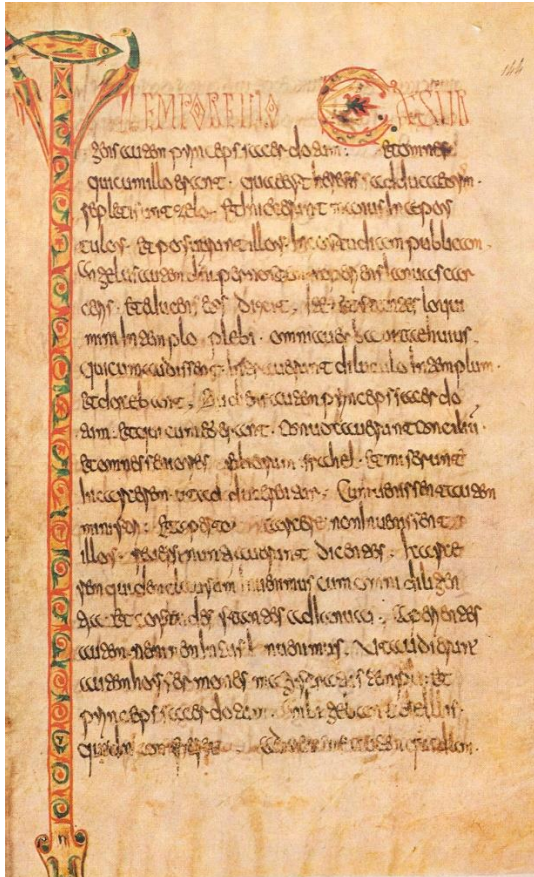 IN TEMPORE ILLO EXSUR
gens autem princeps sacerdotum. et omnes
qui cum illo erant. quae est heresis sadducaeorum.
repleti sunt zelo. Et iniecerunt manus in apos
tulos. et posuerunt illos in custudiam publicam.
Angelus autem dni per noctem aperiens ianuas carce
ris. et educens eos dixit. Ite et stantes loqui
mini in templo plebi. omnia uerba uitae huius.
Qui cum audissent. intrauerunt diluculo in templum.
et docebant. Adueniens autem princeps sacerdo
tum. et qui cum eo erant. conuocauerunt conciliū
et omnes seniores filiorum israhel. et miserunt
in carcerem. ut adducerentur. Cum uenissent autem
ministri. et aperto carcere non inuenissent
illos. reuersi nuntiauerunt dicentes. carce
rem quidem clausum inuenimus cum omni diligen
tia. et custodes stantes ad ianuas. Aperientes
autem neminem intus inuenimus. Ut audierunt
autem hos sermones magistratus templi. et
princeps sacerdotum. ambigebant de illis.
autem quidam.